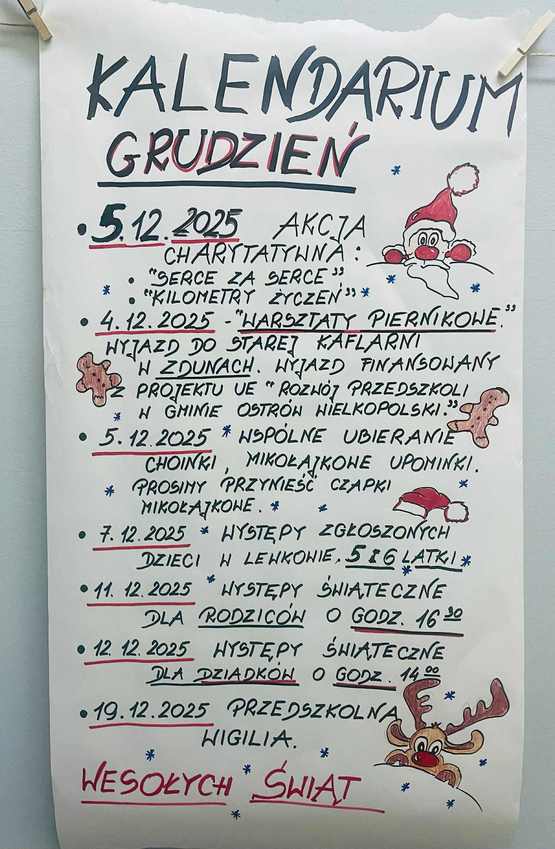 KALENDARIUM
GRUDZIEŃ
• 5.12.2025 AKCJA
CHARYTATYWNA:
• "SERCE ZA SERCE"
• "KILOMETRY ŻYCZEŃ"
• 4.12.2025 - "WARSZTATY PIERNIKOWE."
WYJAZD DO STAREJ KAFLARNI
W ZDUNACH. WYJAZD FINANSOWANY
Z PROJEKTU UE "ROZWÓJ PRZEDSZKOLI
W GMINIE OSTRÓW WIELKOPOLSKI."
• 5.12.2025 * WSPÓLNE UBIERANIE
CHOINKI, MIKOŁAJKOWE UPOMINKI.
PROSIMY PRZYNIEŚĆ CZAPKI
MIKOŁAJKOWE.
• 7.12.2025 * WYSTĘPY ZGŁOSZONYCH
DZIECI W LEWKOWIE, 5 I 6 LATKI
• 11.12.2025 * WYSTĘPY ŚWIĄTECZNE
DLA RODZICÓW O GODZ. 16 30
• 12.12.2025 WYSTĘPY ŚWIĄTECZNE
DLA DZIADKÓW O GODZ. 14 00
• 19.12.2025 PRZEDSZKOLNA
WIGILIA.
WESOŁYCH ŚWIĄT